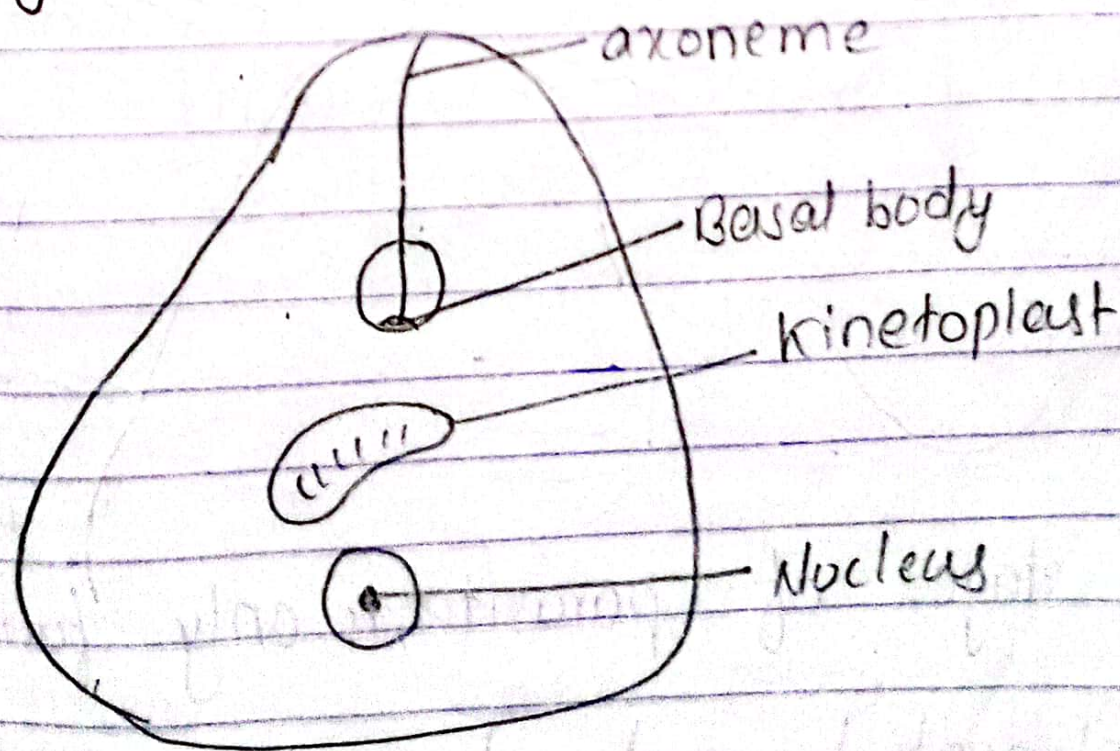 axoneme
Basal body
Kinetoplast
Nucleus